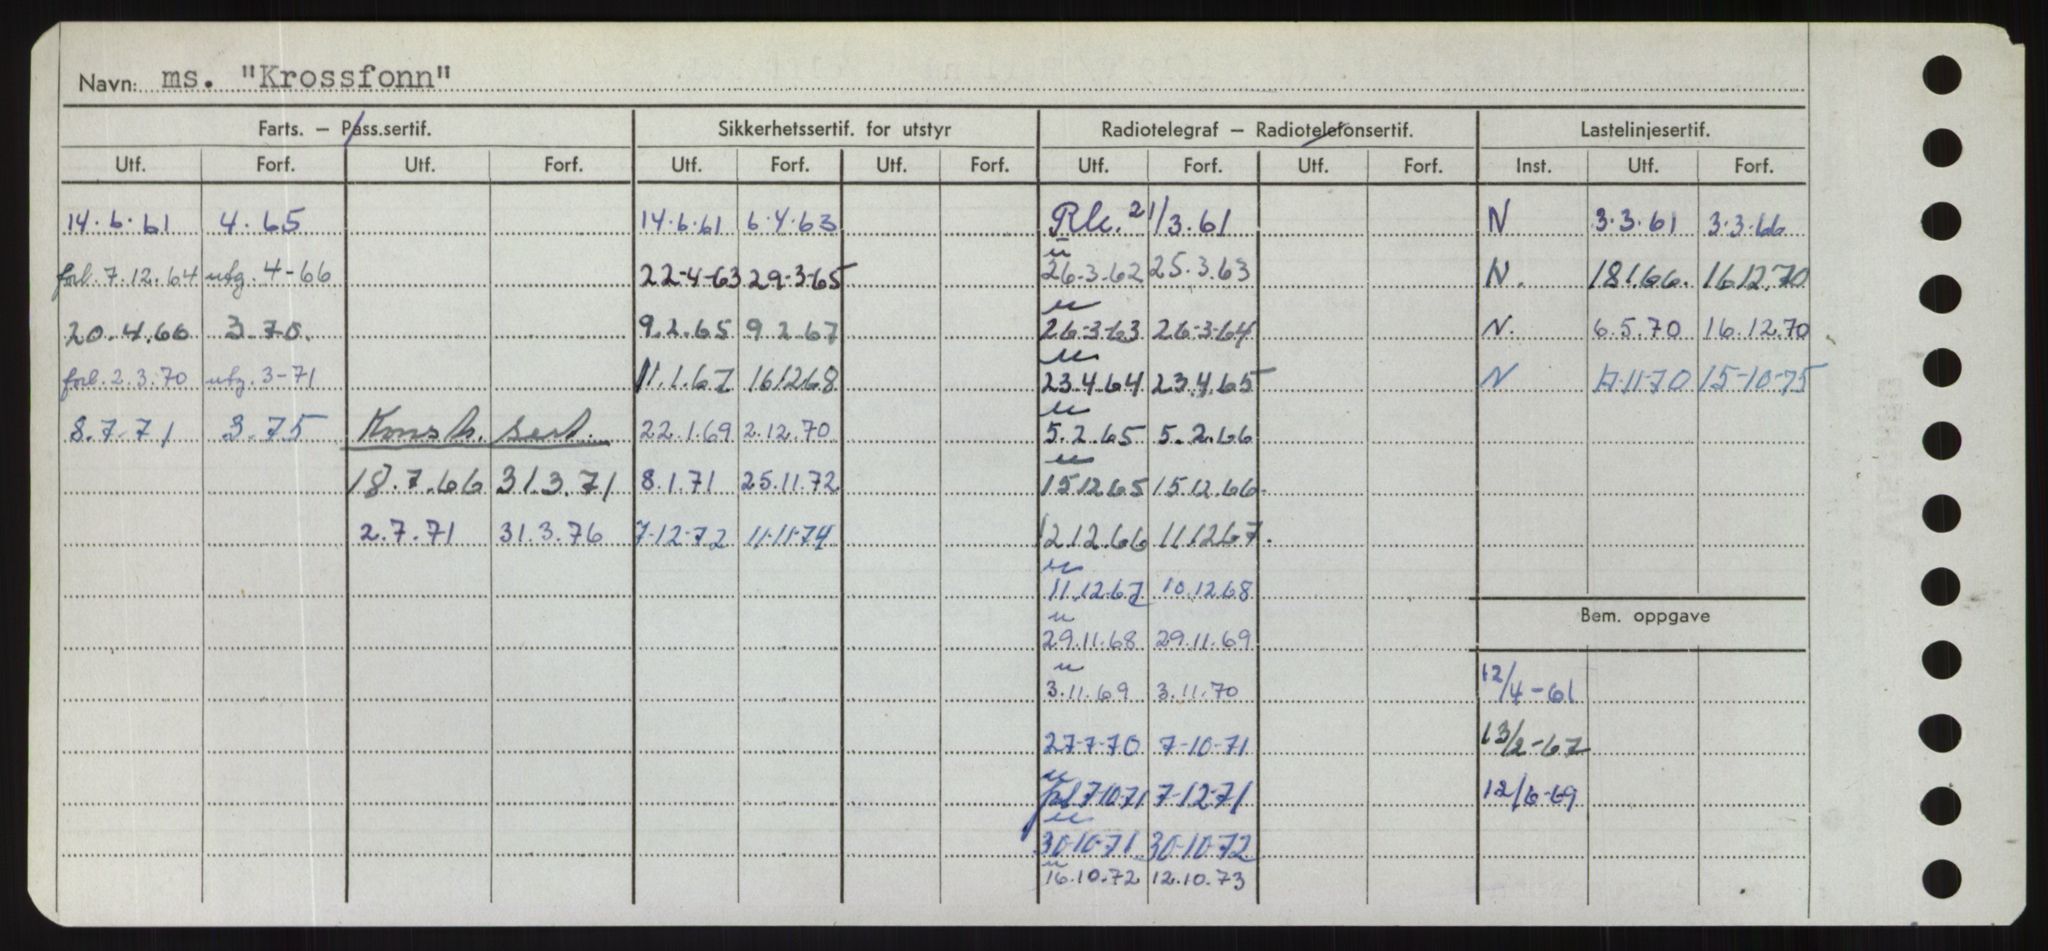 Navn: ms. "Krossfonn"
Farts. – Pass.sertif. Sikkerhetssertif. for utstyr Radiotelegraf – Radiotelefonsertif. Lastelinjesertif.
Utf. Forf. Utf. Forf. Utf. Forf. Utf. Forf. Utf. Forf. Utf. Forf. Inst. Utf. Forf.
14.6.61 4.65 14.6.61 6.4.63 21/3.61 N 3.3.61 3.3.66
forl. 7.12.64 utg. 4-66 22-4-63 29-3-65 26-3.62 25.3.63 N. 18.1.66. 16.12.70
20.4.66 3.70. 9.2.65 9.2.67 26-3-63 26-3-64 N. 6.5.70 16.12.70
forl. 2.3.70 utg. 3-71 11.1.67 16.12.68 23.4.64 23.4.65 N 17-11-70 15-10-75
8.7.71 3.75 Konstr. sert. 22.1.69 2.12.70 5.2.65 5.2.66
18.7.66 31.3.71 8.1.71 25.11.72 15.12.65 15.12.66.
2.7.71 31.3.76 7-12-72 11-11-74 12.12.66 11.12.67.
11.12.67 10.12.68
Bem. oppgave
29.11.68 29.11.69
3.11.69 3.11.70 12/4-61
27-7-70 7-10-71 13/2-67
forl 7-10-71 7-12-71 12/6-69
30-10-71 30-10-72
16.10.72 12.10.73